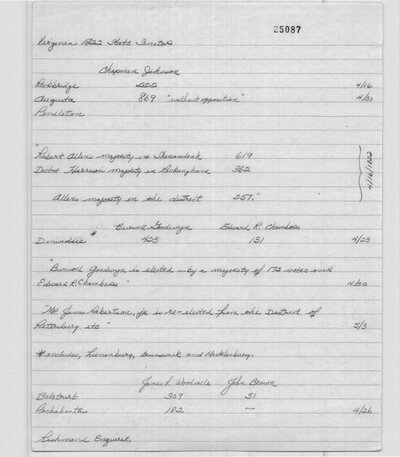 25087
Virginia 1822 State Senators
Chapman Johnson
Rockbridge 200 4/16
Augusta 869 "without opposition" 4/30
Pendleton
"Robert Allen's majority in Shenandoah 619
Doctor Harrison majority in Rockingham 362
Allen's majority in the district 257."
4/16/1822
Burwell Goodwyn Edward R. Chambers
Dinwiddie # 423 131 4/23
"Burwell Goodwyn is elected by a majority of 173 votes over
Edward R. Chambers" 4/30
"Mr James Robertson, jr. is re-elected from the District of
Petersburg, etc" 5/3
# includes, Lunenburg, Brunswick and Mecklenburg.
James L. Woodville John Bowe
Botetourt 309 51
Pocahontas 182 — 4/26
Richmond Enquirer